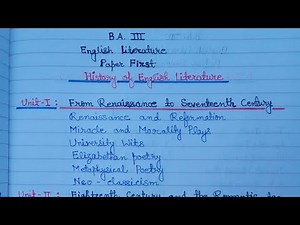 B.A. III
English Literature
Paper First
History of English Literature
Unit-I : From Renaissance to Seventeenth Century
Renaissance and Reformation
Miracle and Morality Plays
University Wits
Elizabethan poetry
Metaphysical Poetry
Neo-classicism
Unit-II : Eighteenth Century and the Romantic